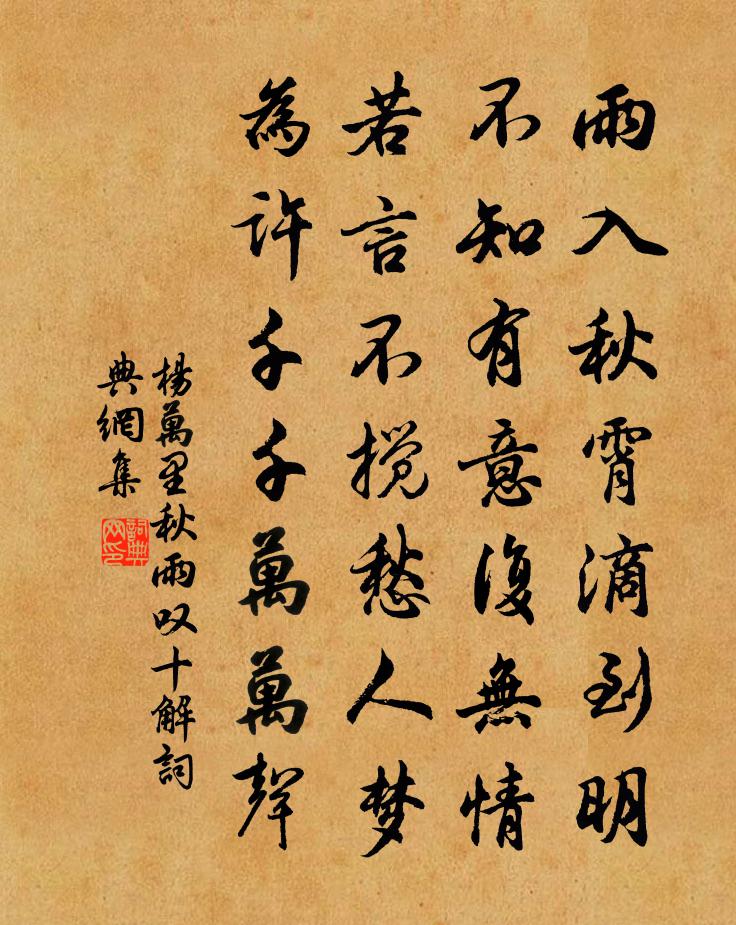 雨入秋霄滴到明
不知有意復無情
若言不搅愁人梦
為許千千萬萬聲
楊萬里秋雨叹十解詞
典網集
詞典
网印